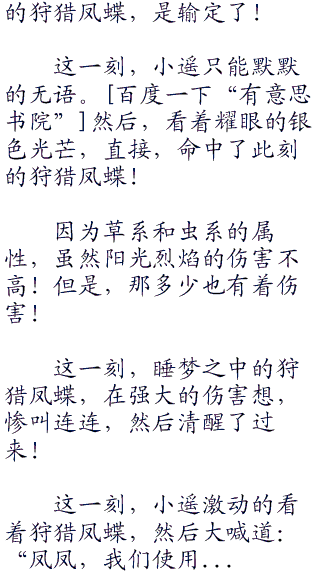 的狩猎凤蝶，是输定了！
这一刻，小遥只能默默
的无语。[百度一下“有意思
书院”]然后，看着耀眼的银
色光芒，直接，命中了此刻
的狩猎凤蝶！
因为草系和虫系的属
性，虽然阳光烈焰的伤害不
高！但是，那多少也有着伤
害！
这一刻，睡梦之中的狩
猎凤蝶，在强大的伤害想，
惨叫连连，然后清醒了过
来！
这一刻，小遥激动的看
着狩猎凤蝶，然后大喊道：
“凤凤，我们使用...